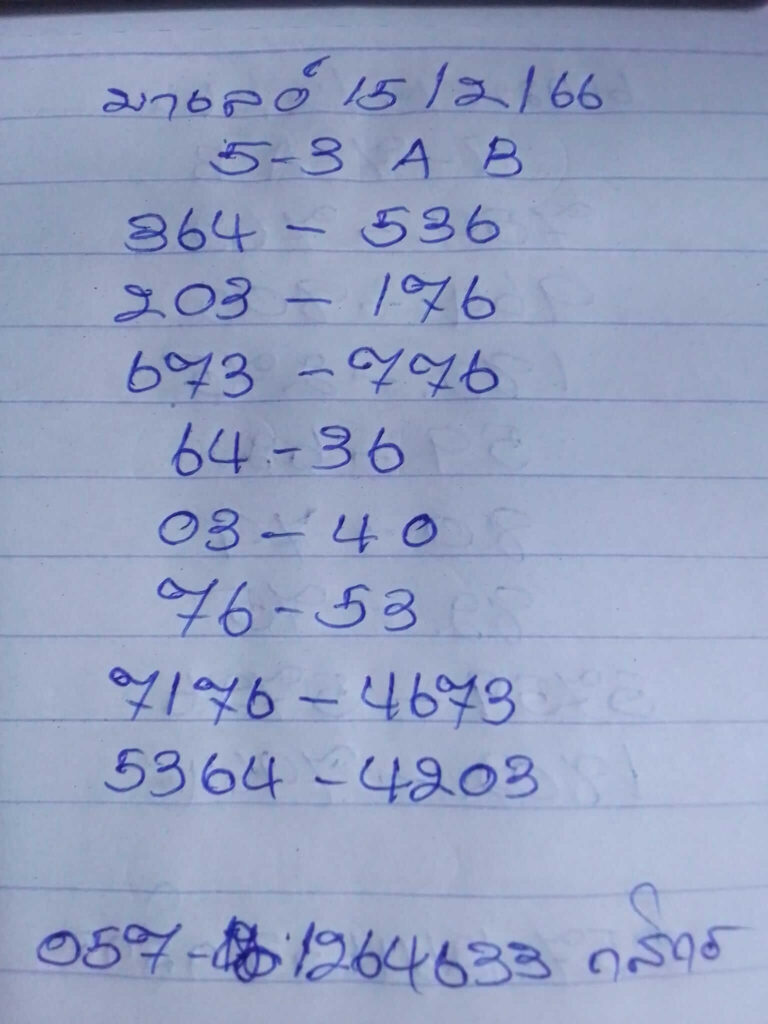 มาเลย์ 15/2/66
5-3 A B
364 - 536
203 - 176
673 - 776
64 - 36
03 - 40
76 - 53
7176 - 4673
5364 - 4203
057- 1264633 กสิกร